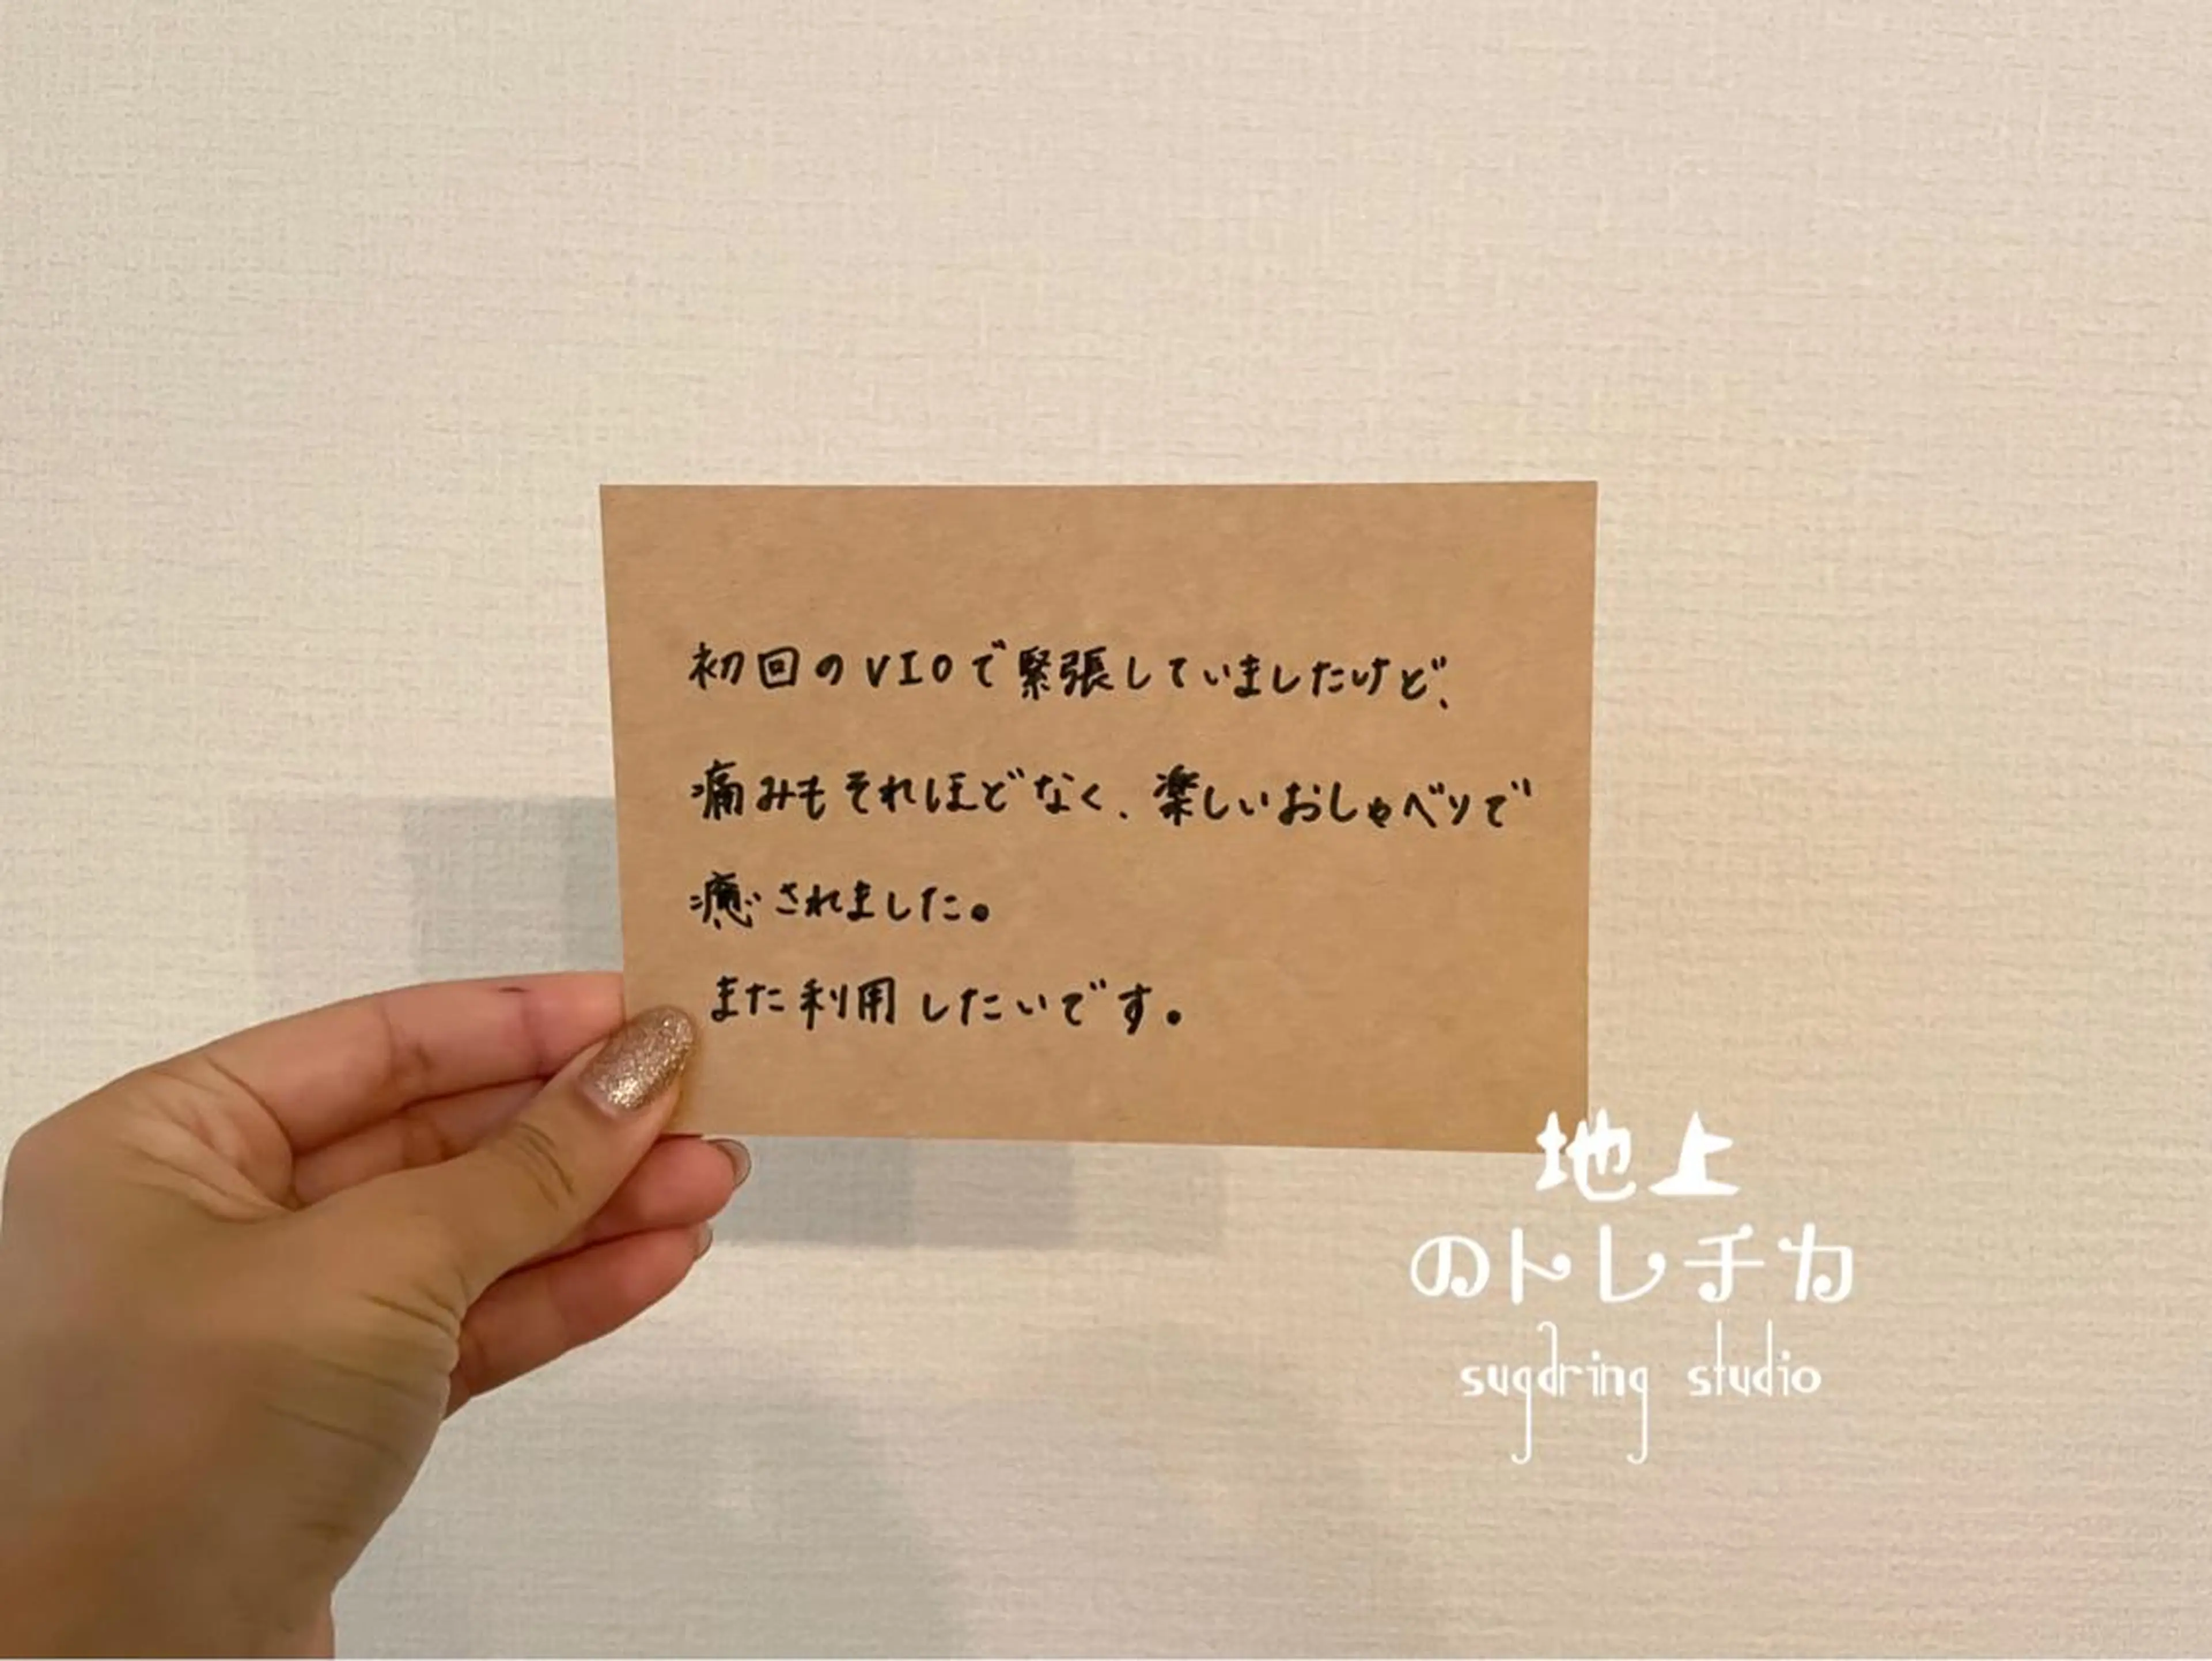 初回のVIOで緊張していましたけど、
痛みもそれほどなく、楽しいおしゃべりで
癒されました。
また利用したいです。
地上
のトレチカ
sugaring studio